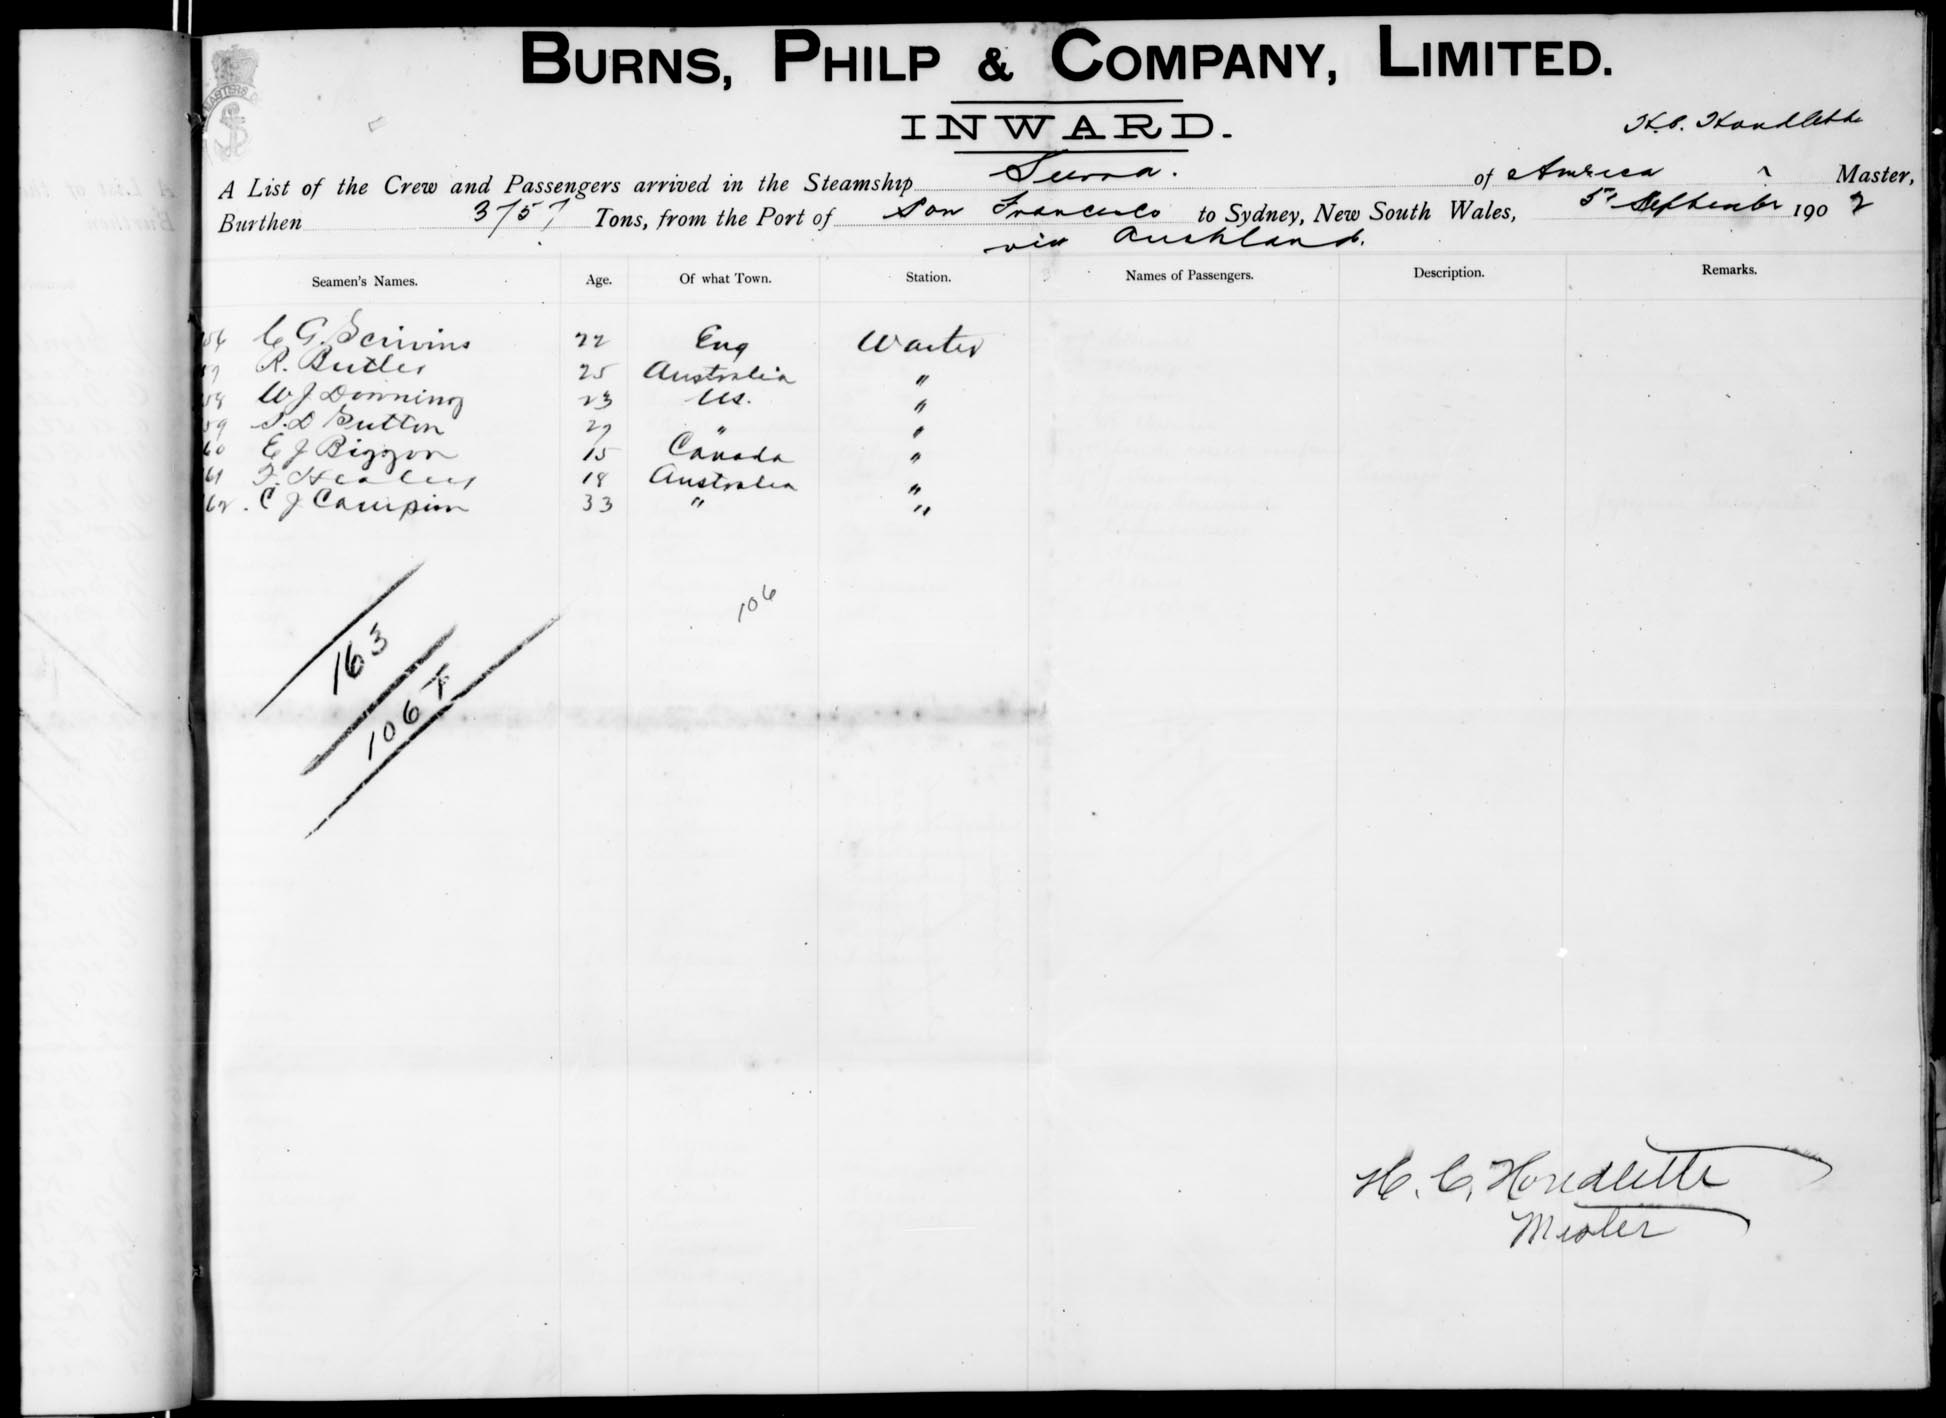 BURNS, PHILP & COMPANY, LIMITED.
INWARD.
H.C. Houdlette
A List of the Crew and Passengers arrived in the Steamship Sierra. of America Master,
Burthen 3757 Tons, from the Port of San Francisco to Sydney, New South Wales, 5th September 1902
via Auckland.
Seamen's Names. Age. Of what Town. Station. Names of Passengers. Description. Remarks.
56 C G. Scrivins 22 Eng Waiter
57 R. Butler 25 Australia "
58 W J Downing 23 US. "
59 S. D Sutton 27 " "
60 E J Biggon 15 Canada "
61 F. Healey 18 Australia "
62. C J Campion 33 " "
106
163
106
H. C. Houdlette
Master